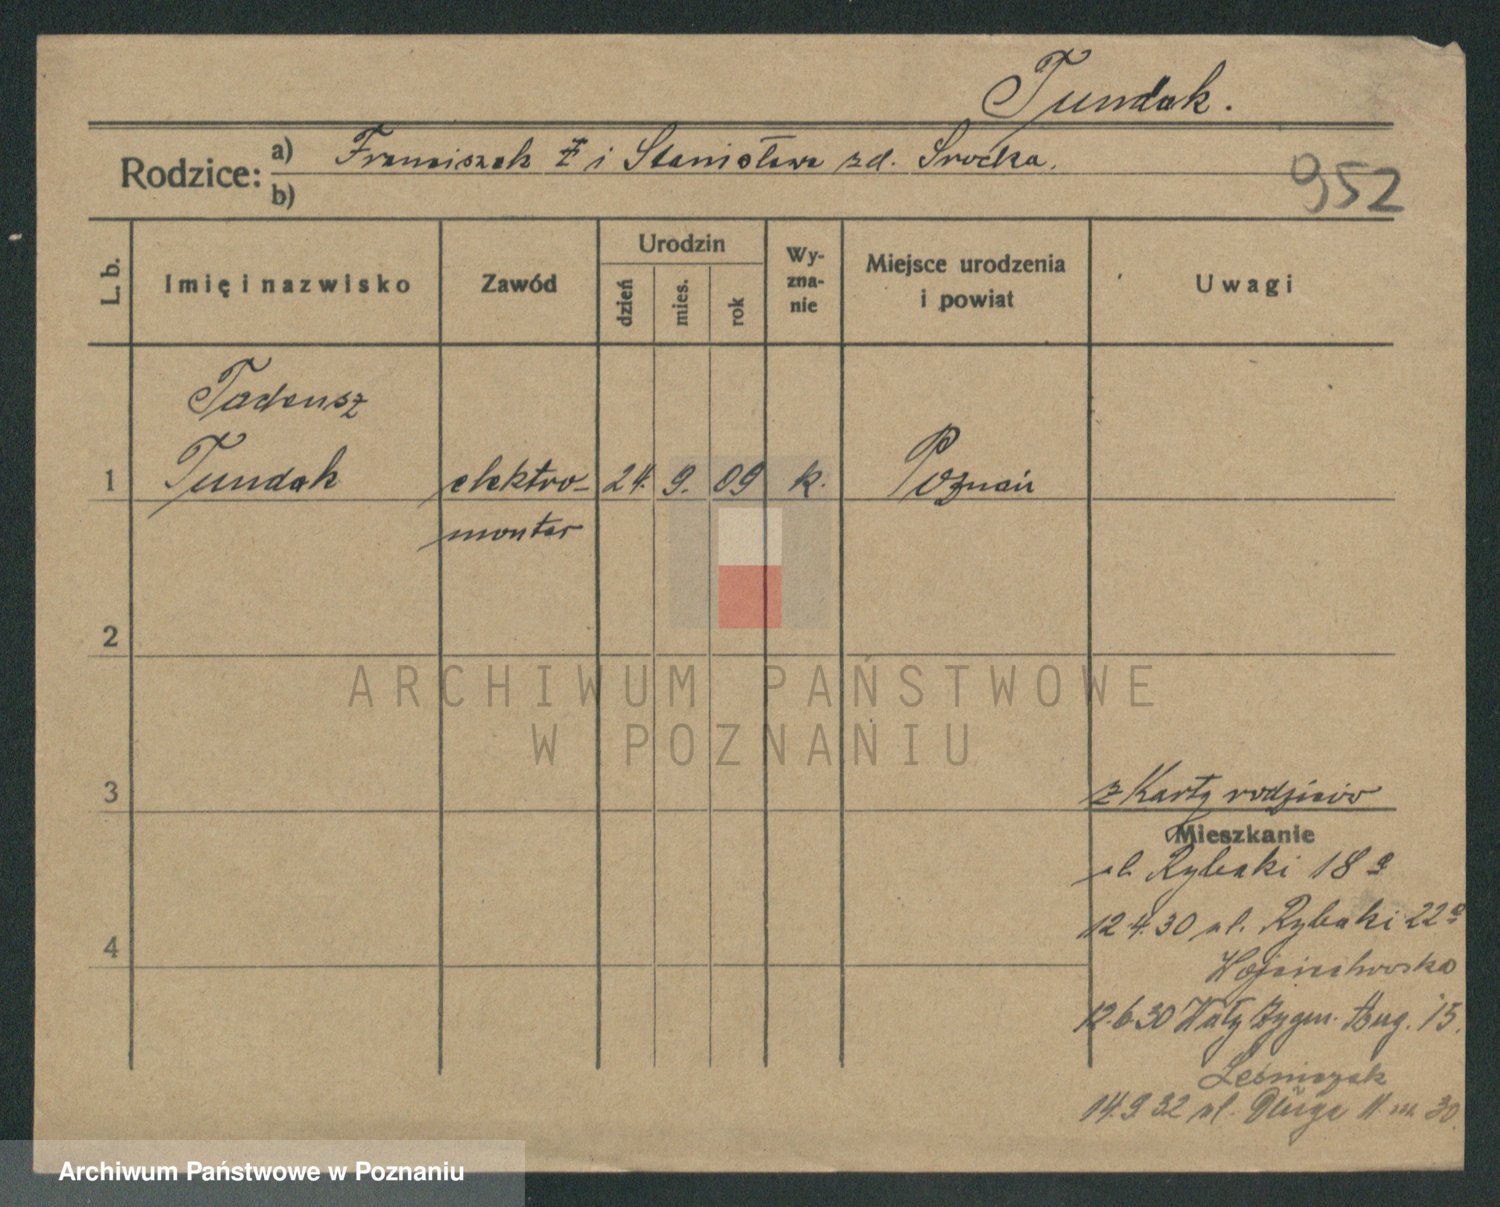 Tundak.
Rodzice: a) Franciszek Ŧ i Stanisława zd. Srocka.
b)
952
L. b.
Imię i nazwisko
Zawód
Urodzin
dzień
mies.
rok
Wy-
zna-
nie
Miejsce urodzenia
i powiat
Uwagi
Tadeusz
1 Tundak elektro- 24. 9. 09 k. Poznań
monter
2
ARCHIWUM PAŃSTWOWE
W POZNANIU
3 z Karty rodziców
Mieszkanie
ul. Rybaki 18 a
12.4.30 ul. Rybaki 22a
4 Wojciechowska
12.6.30 Wały Zygm. Aug. 15.
Leśniczak
14.9.32 ul. Długa 11 m. 30.
Archiwum Państwowe w Poznaniu